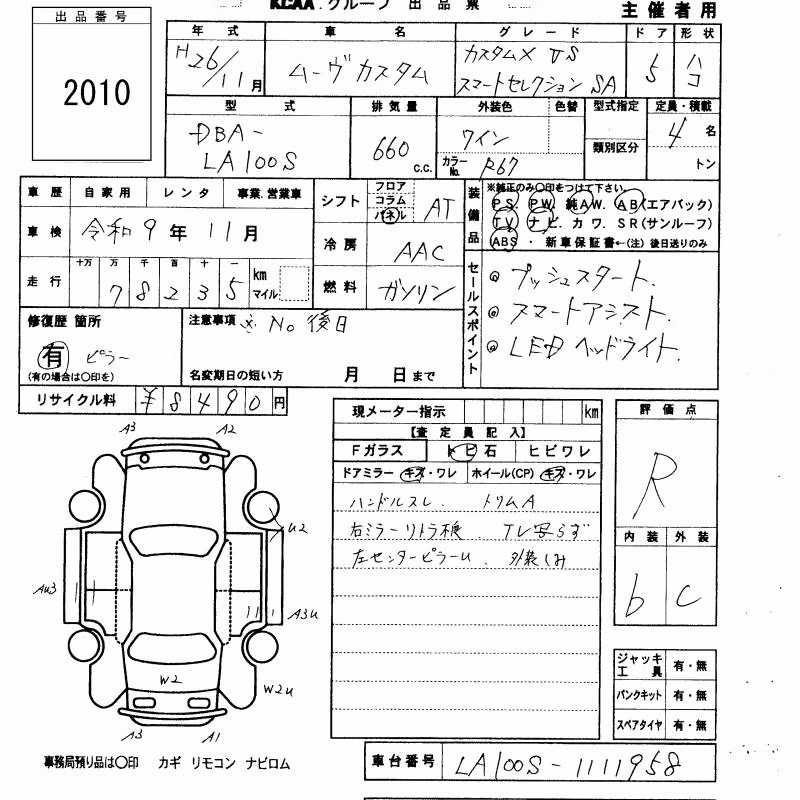 KCAA.グループ 出品票
主催者用
出品番号
2010
年式 車名 グレード ドア 形状
H26/11月 ムーヴカスタム カスタムX VS スマートセレクション SA 5 ハコ
型式 排気量 外装色 色替 型式指定 定員・積載
DBA-LA100S 660 c.c. ワイン カラーNo. R67 類別区分 4名 トン
車歴 自家用 レンタ 事業.営業車
車検 令和9年11月
走行 十万 万 千 百 十 一 km マイル
78235
シフト フロア コラム パネル AT
冷房 AAC
燃料 ガソリン
装備品 ※純正のみ○印をつけて下さい。
PS PW 純AW. AB(エアバック)
TV ナビ. カワ. SR(サンルーフ)
ABS ・ 新車保証書←(注) 後日送りのみ
セールスポイント
プッシュスタート.
スマートアシスト.
LEDヘッドライト.
修復歴 箇所
有 ピラー
(有の場合は○印を)
注意事項 ※No後日
名変期日の短い方 月 日まで
リサイクル料 ¥8490円
現メーター指示 km
【査定員記入】
Fガラス トビ石 ヒビワレ
ドアミラー キズ・ワレ ホイール(CP) キズ・ワレ
ハンドルスレ. トリムA
右ミラーリトラ横. TV写らず
左センターピラーU. 外装しみ
評価点
R
内装 外装
b C
A3 A2
U2
AU3 A3U
W2 W2U
A3 A1
ジャッキ工具 有・無
パンクキット 有・無
スペアタイヤ 有・無
事務局預り品は○印 カギ リモコン ナビロム
車台番号 LA100S-1111958